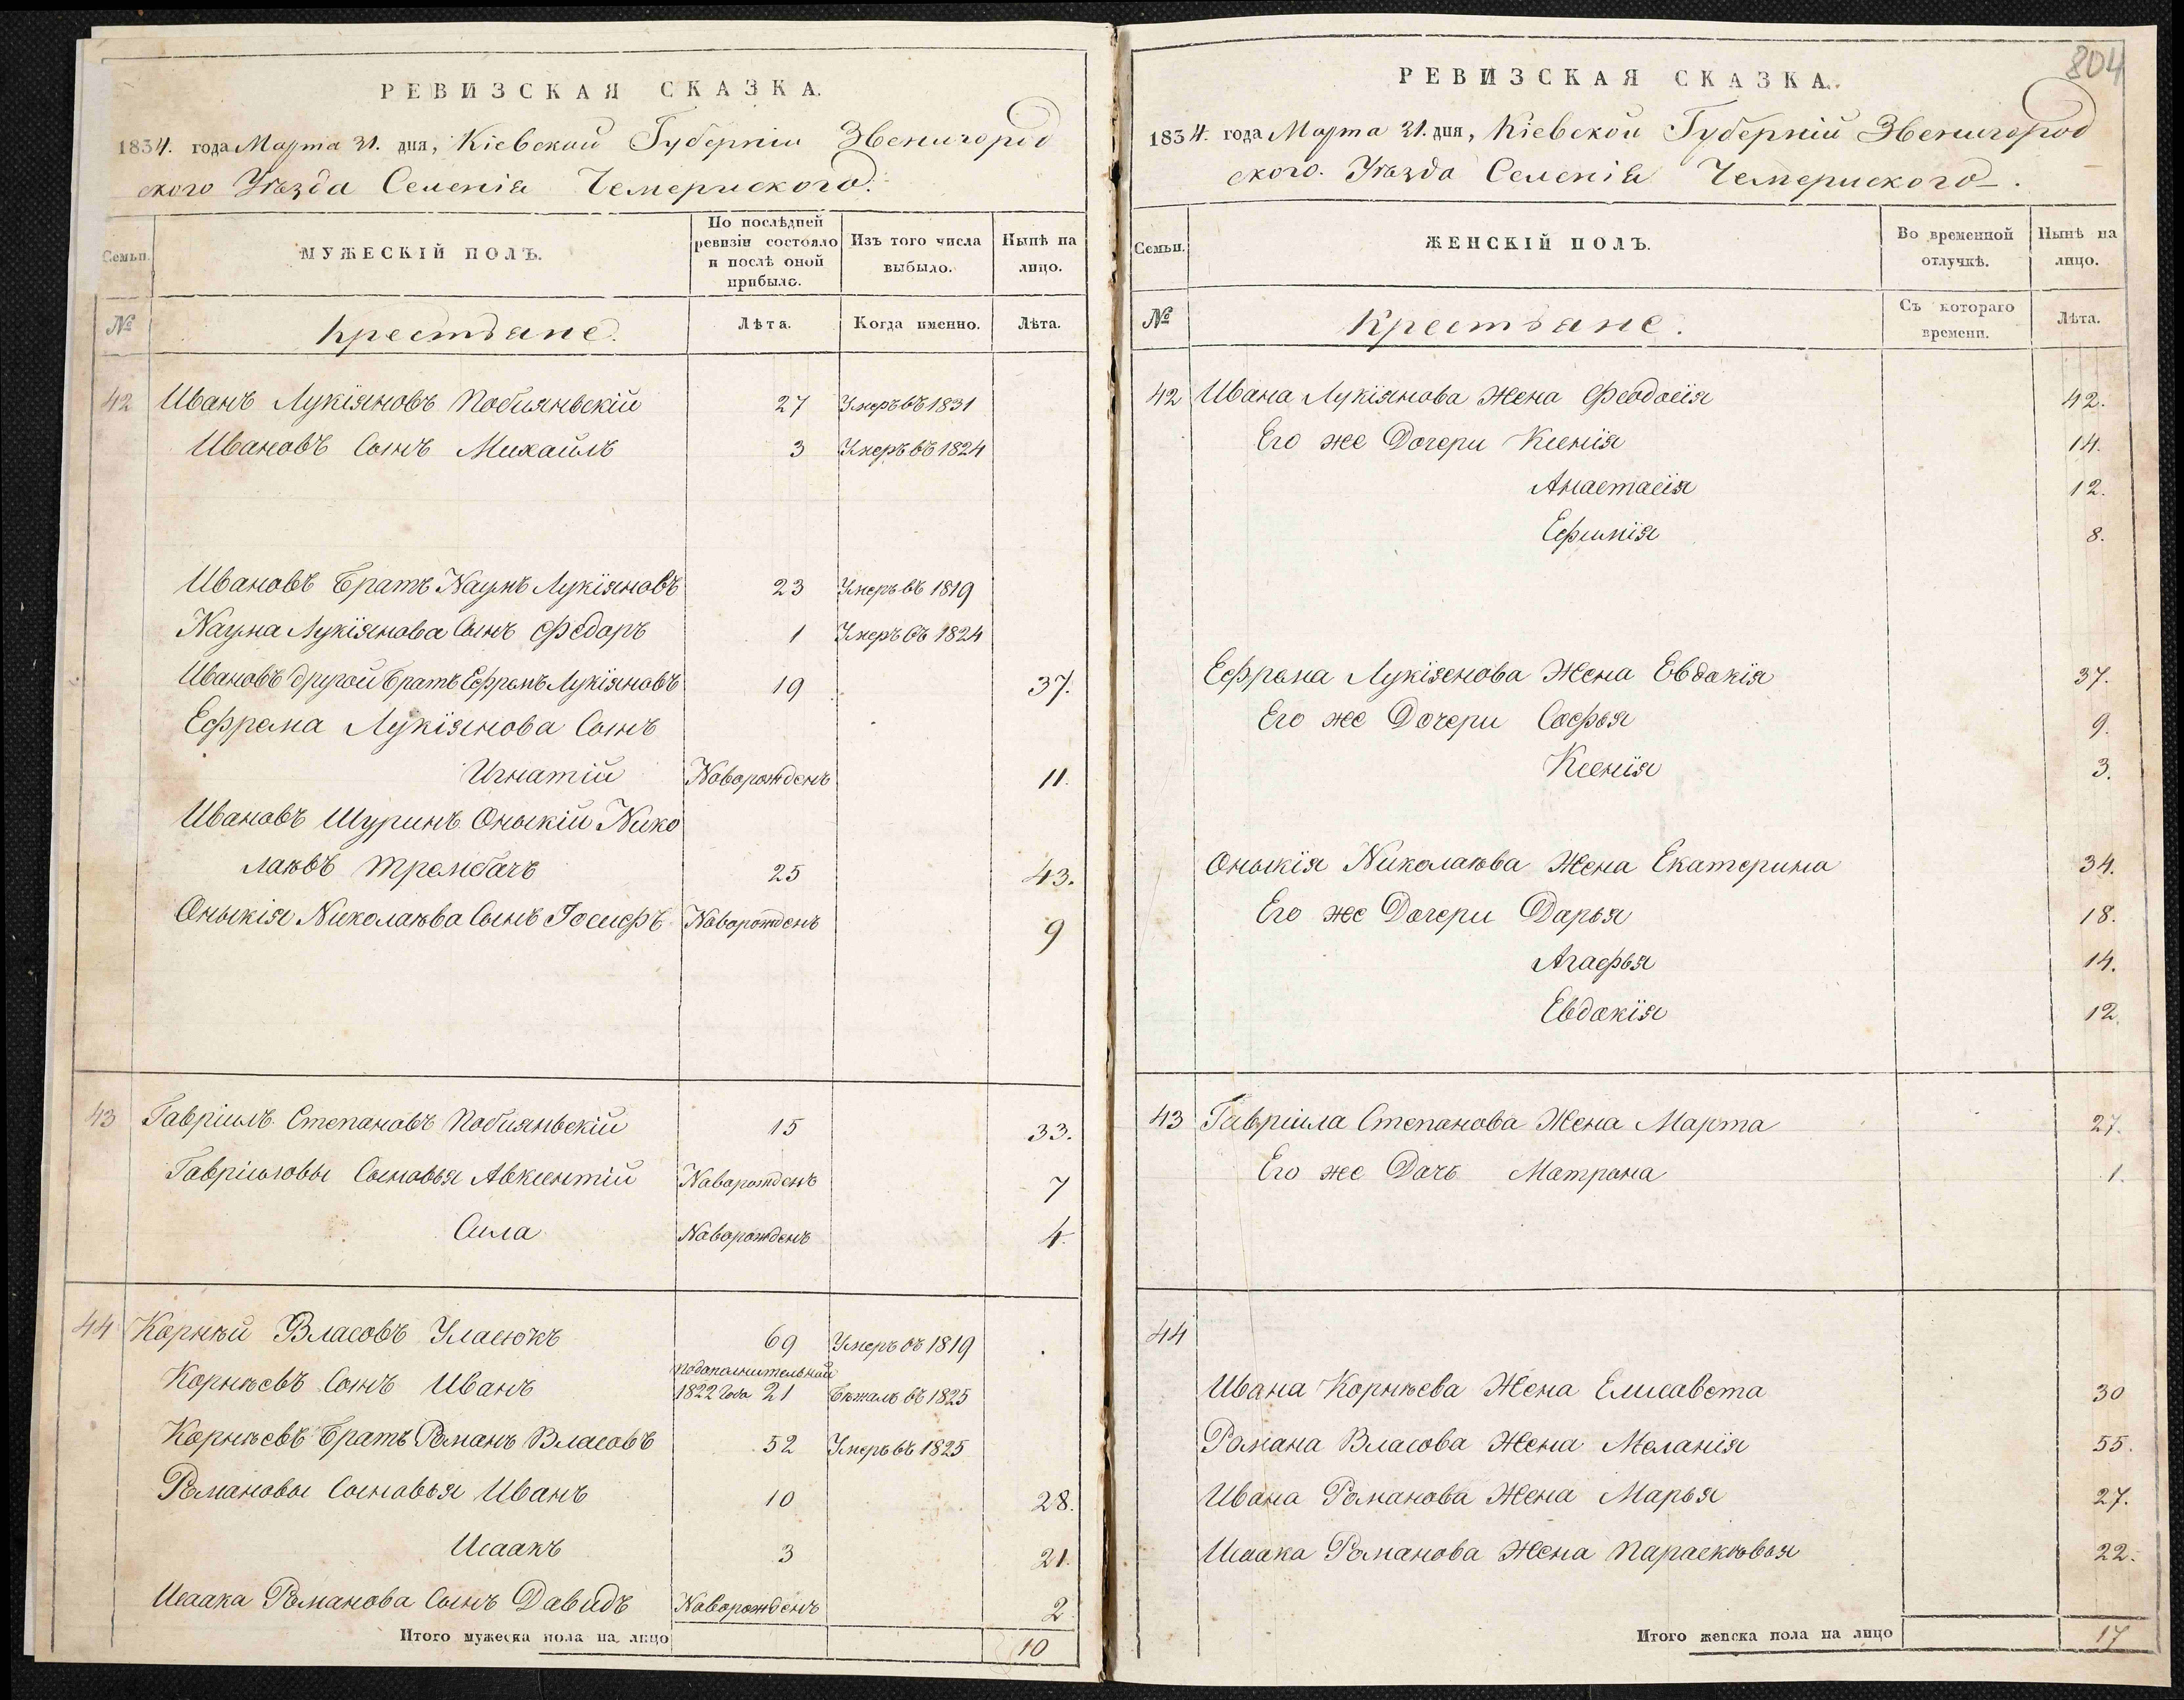 РЕВИЗСКАЯ СКАЗКА.
1834. года Марта 21. дня, Кіевской Губерніи Звенигород
ского Уѣзда Селенія Чемериского.
Семьи.
МУЖЕСКІЙ ПОЛЪ.
По послѣдней ревизіи состояло и послѣ оной прибыло.
Изъ того числа выбыло.
Нынѣ на лицо.
№
Крестьяне.
Лѣта.
Когда именно.
Лѣта.
42 Иванъ Лукіяновъ Побияньскій 27 Умеръ въ 1831
Ивановъ Сынъ Михаилъ 3 Умеръ въ 1824
Ивановъ Братъ Наумъ Лукіяновъ 23 Умеръ въ 1819
Наума Лукіянова Сынъ Федоръ 1 Умеръ въ 1824
Ивановъ другой Братъ Ефремъ Лукіяновъ 19 37.
Ефрема Лукіянова Сынъ
Игнатій Новорожденъ 11.
Ивановъ Шуринъ Оныкій Нико
лаевъ Трембачъ 25 43.
Оныкія Николаева Сынъ Іосифъ Новорожденъ 9
43 Гавріилъ Степановъ Побияньскій 15 33.
Гавріиловы Сыновья Авксентій Новорожденъ 7
Сила Новорожденъ 4.
44 Корнѣй Власовъ Уласюкъ 69 Умеръ въ 1819
подополнительной
Корнѣевъ Сынъ Иванъ 1822 года 21 Бѣжалъ въ 1825
Корнѣевъ Братъ Романъ Власовъ 52 Умеръ въ 1825
Романовы Сыновья Иванъ 10 28.
Исаакъ 3 21.
Исаака Романова Сынъ Давидъ Новорожденъ 2
Итого мужеска пола на лицо 10
804
РЕВИЗСКАЯ СКАЗКА.
1834. года Марта 21. дня, Кіевской Губерніи Звенигород
ского. Уѣзда Селенія Чемериского.
Семьи.
ЖЕНСКІЙ ПОЛЪ.
Во временной отлучкѣ.
Нынѣ на лицо.
№
Крестьяне.
Съ котораго времени.
Лѣта.
42 Ивана Лукіянова Жена Феодосія 42.
Его же Дочери Ксенія 14.
Анастасія 12.
Ефимія 8.
Ефрема Лукіянова Жена Евдокія 37.
Его же Дочери Софья 9.
Ксенія 3.
Оныкія Николаева Жена Екатерина 34.
Его же Дочери Дарья 18.
Агафья 14.
Евдокія 12.
43 Гавріила Степанова Жена Марта 27.
Его же Дочь Матрона 1.
44
Ивана Корнѣева Жена Елисавета 30
Романа Власова Жена Меланія 55.
Ивана Романова Жена Марья 27.
Исаака Романова Жена Парасковья 22.
Итого женска пола на лицо 17